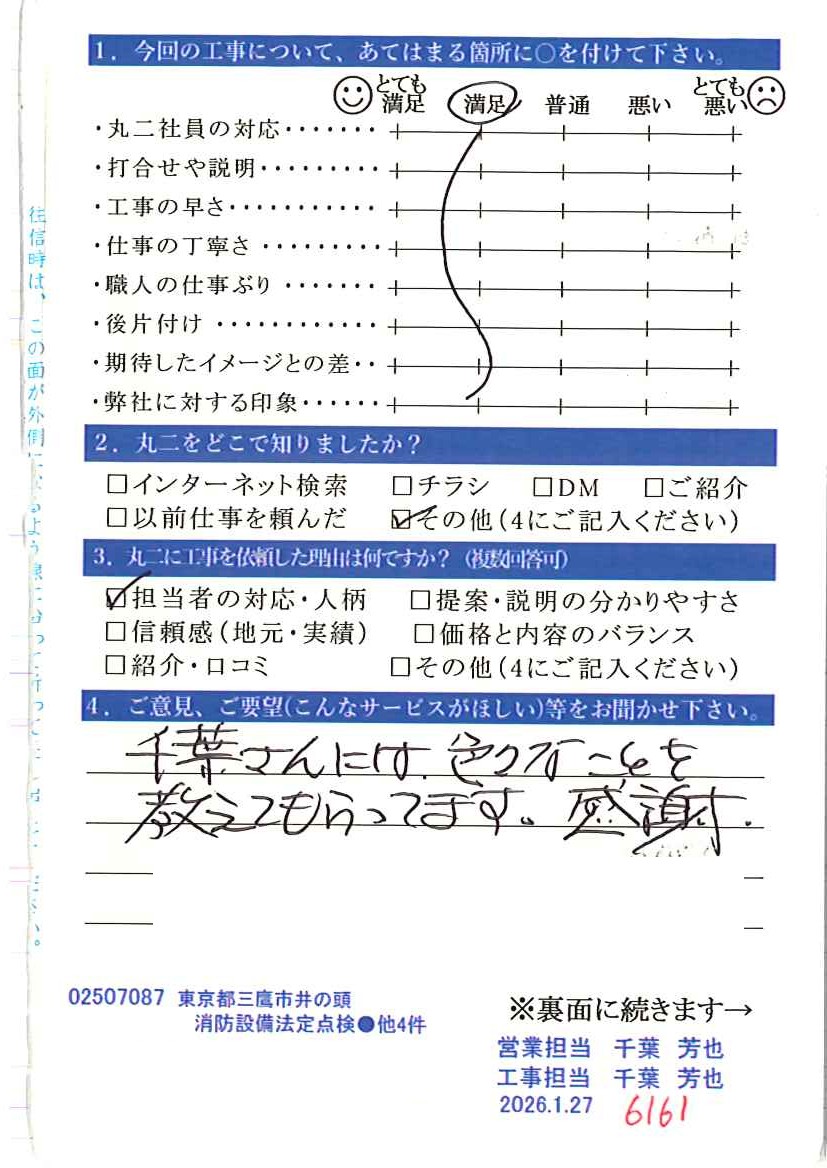 1．今回の工事について、あてはまる箇所に○を付けて下さい。
とても満足 満足 普通 悪い とても悪い
・丸二社員の対応・・・・・・・
・打合せや説明・・・・・・・・・
・工事の早さ・・・・・・・・・・・
・仕事の丁寧さ・・・・・・・・・
・職人の仕事ぶり・・・・・・・
・後片付け・・・・・・・・・・・・
・期待したイメージとの差・・
・弊社に対する印象・・・・・・
2．丸二をどこで知りましたか？
□インターネット検索 □チラシ □DM □ご紹介
□以前仕事を頼んだ ☑その他(4にご記入ください)
3．丸二に工事を依頼した理由は何ですか？（複数回答可）
☑担当者の対応・人柄 □提案・説明の分かりやすさ
□信頼感(地元・実績) □価格と内容のバランス
□紹介・口コミ □その他(4にご記入ください)
4．ご意見、ご要望(こんなサービスがほしい)等をお聞かせ下さい。
千葉さんには、色々なことを
教えてもらってます。感謝です.
02507087 東京都三鷹市井の頭
消防設備法定点検●他4件
※裏面に続きます→
営業担当 千葉 芳也
工事担当 千葉 芳也
2026.1.27 6161
往信時は、この面が外側に